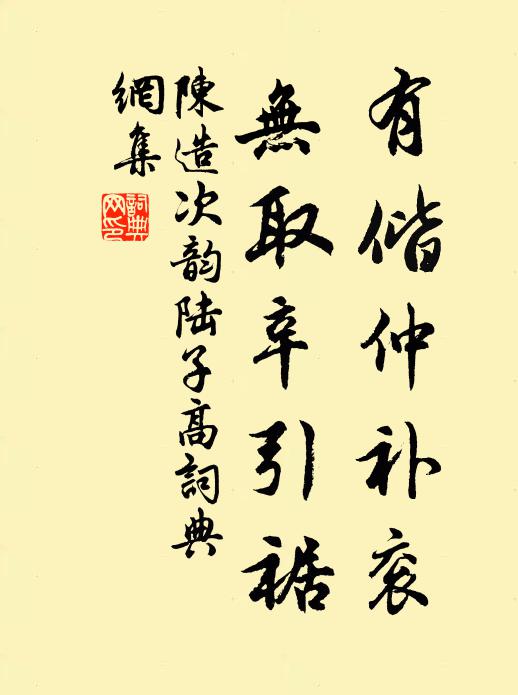 有偕仲补衮
無取辛引裾
陳造次韵陆子高詞典
網集
詞典
网印